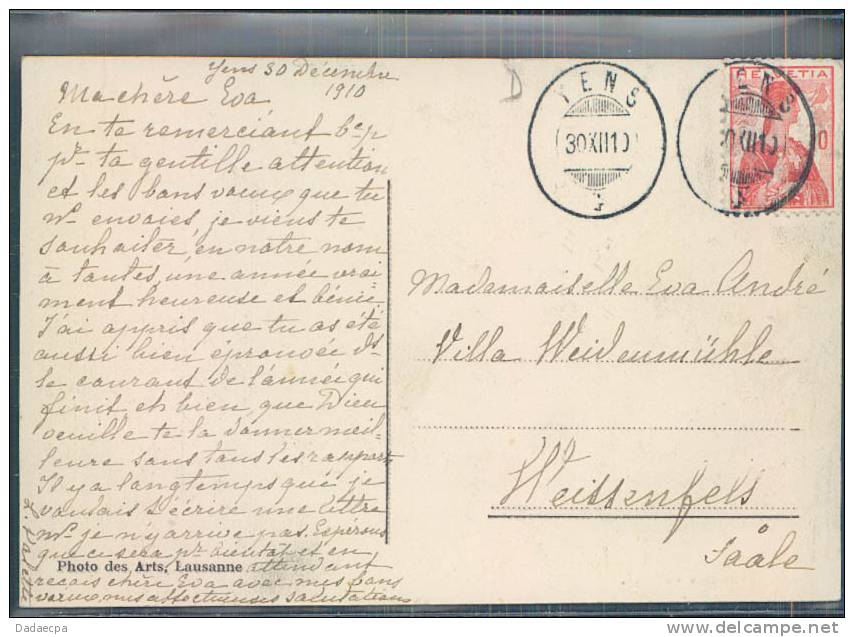 Yens 30 Décembre
1910
Ma chère Eva
En te remerciant bcp
pr ta gentille attention
et les bons voeux que tu
m' envoies, je viens te
souhaiter, en notre nom
à toutes, une année vrai-
ment heureuse et bénie.
J'ai appris que tu as été
aussi bien éprouvée ds
le courant de l'année qui
finit eh bien, que Dieu
veuille te la donner meil-
leure sous tous les rapports
Il y a longtemps que je
voulais t'écrire une lettre
je n'y arrive pas. Espérons
que ce sera pr bientôt et en
attendant
reçois chère Eva avec mes bons
voeux, mes affectueuses salutations
Photo des Arts, Lausanne
D
YENS
30XII10
YENS
XII10
HELVETIA
10
Mademoiselle Eva André
Villa Weidenmühle
Weissenfels
Saale
Dadaecpa
www.delcampe.net